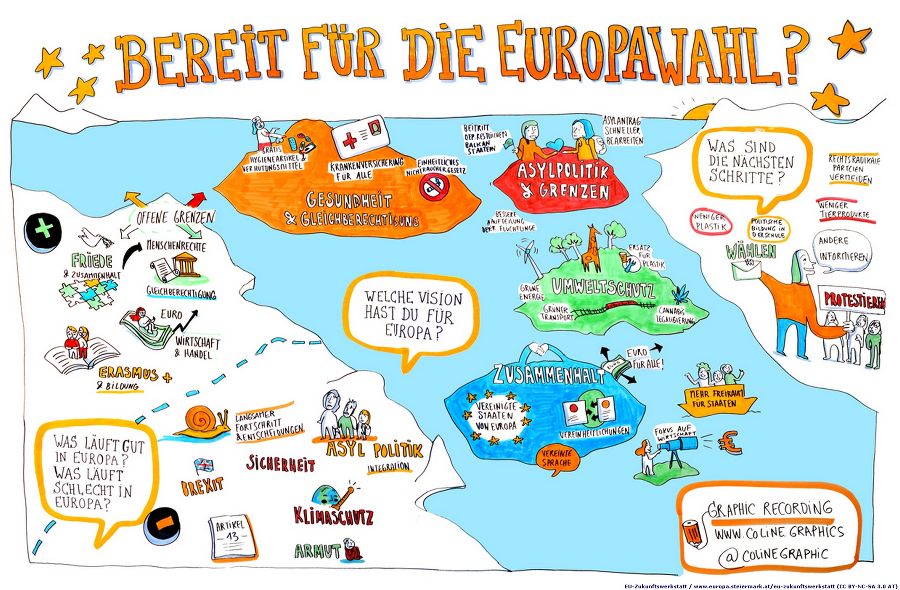 BEREIT FÜR DIE EUROPAWAHL?
GRATIS
HYGIENEARTIKEL &
VERHÜTUNGSMITTEL
KRANKENVERSICHERUNG
FÜR ALLE
EINHEITLICHES
NICHTRAUCHERGESETZ
GESUNDHEIT
& GLEICHBERECHTIGUNG
BEITRITT
DER RESTLICHEN
BALKAN
STAATEN
ASYLANTRAG
SCHNELLER
BEARBEITEN
ASYLPOLITIK
& GRENZEN
BESSERE
AUFTEILUNG
DER FLÜCHTLINGE
WAS SIND
DIE NÄCHSTEN
SCHRITTE?
RECHTSRADIKALE
PARTEIEN
VERMEIDEN
WENIGER
TIERPRODUKTE
WENIGER
PLASTIK
POLITISCHE
BILDUNG IN
DER SCHULE
WÄHLEN
ANDERE
INFORMIEREN
PROTESTIEREN
OFFENE GRENZEN
FRIEDE
& ZUSAMMENHALT
MENSCHENRECHTE
GLEICHBERECHTIGUNG
EURO
WIRTSCHAFT
& HANDEL
ERASMUS +
& BILDUNG
WELCHE VISION
HAST DU FÜR
EUROPA?
ERSATZ
FÜR
PLASTIK
GRÜNE
ENERGIE
UMWELTSCHUTZ
GRÜNER
TRANSPORT
CANNABIS
LEGALISIERUNG
ZUSAMMENHALT
EURO
FÜR ALLE!
VEREINIGTE
STAATEN
VON EUROPA
VEREINHEITLICHUNGEN
VEREINTE
SPRACHE
MEHR FREIRAUM
FÜR STAATEN
FOKUS AUF
WIRTSCHAFT
€
WAS LÄUFT GUT
IN EUROPA?
WAS LÄUFT
SCHLECHT IN
EUROPA?
LANGSAMER
FORTSCHRITT
& ENTSCHEIDUNGEN
ASYL POLITIK
INTEGRATION
BREXIT
SICHERHEIT
KLIMASCHUTZ
ARTIKEL
- 13 -
ARMUT
GRAPHIC RECORDING
WWW.COLINE GRAPHICS
@COLINEGRAPHIC
EU-Zukunftswerkstatt / www.europa.steiermark.at/eu-zukunftswerkstatt (CC BY-NC-SA 3.0 AT)